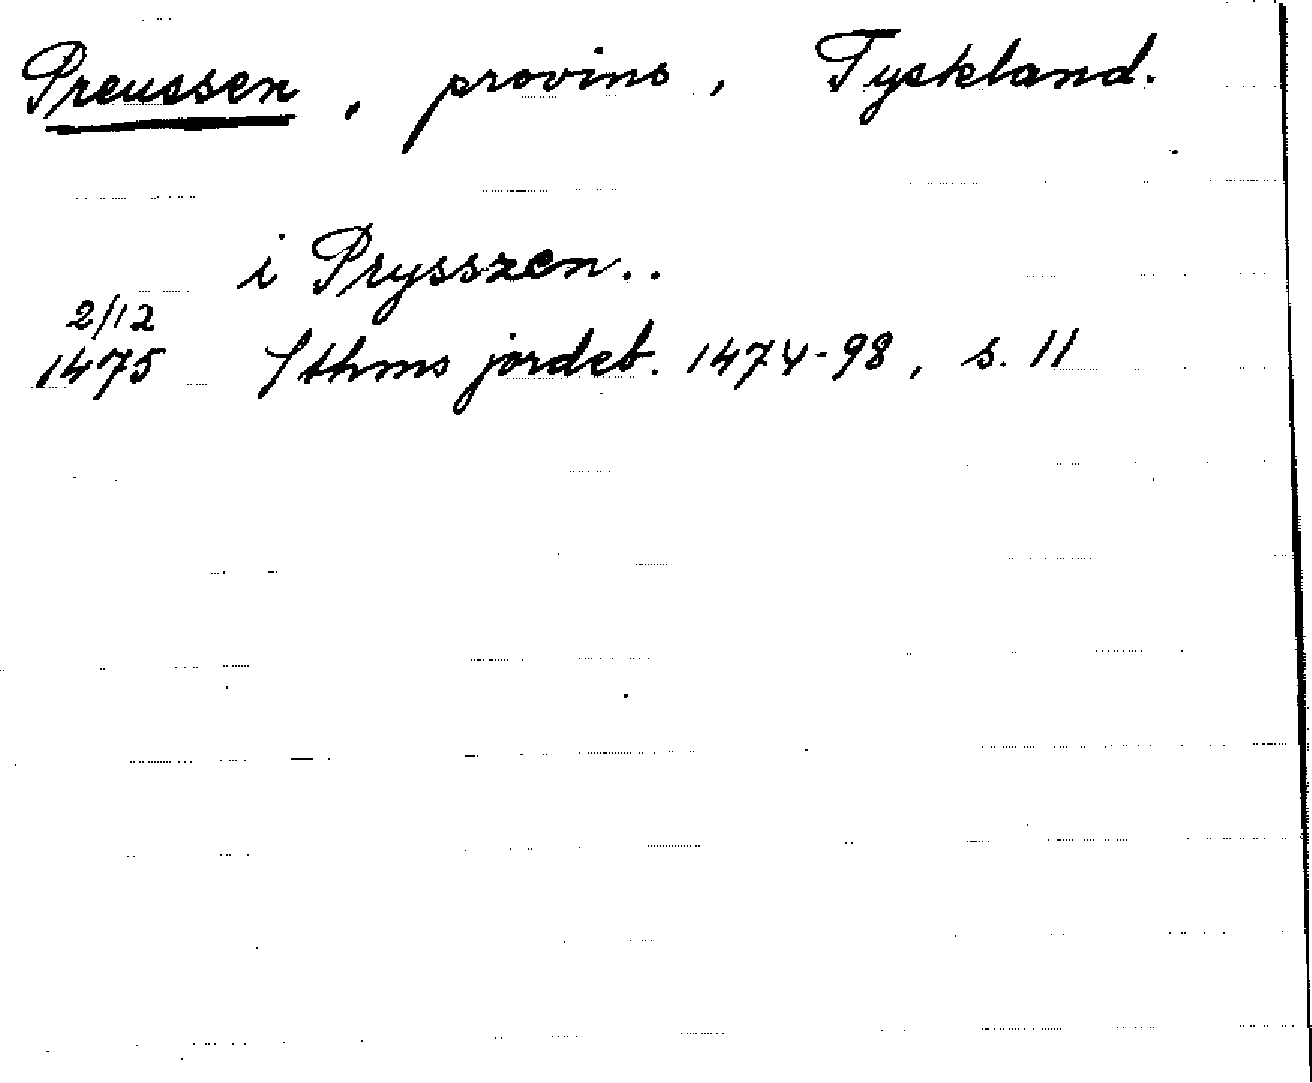 Preussen, provins, Tyskland.
i Prysszen..
2/12
1475 Sthms jordeb. 1474-98, s. 11